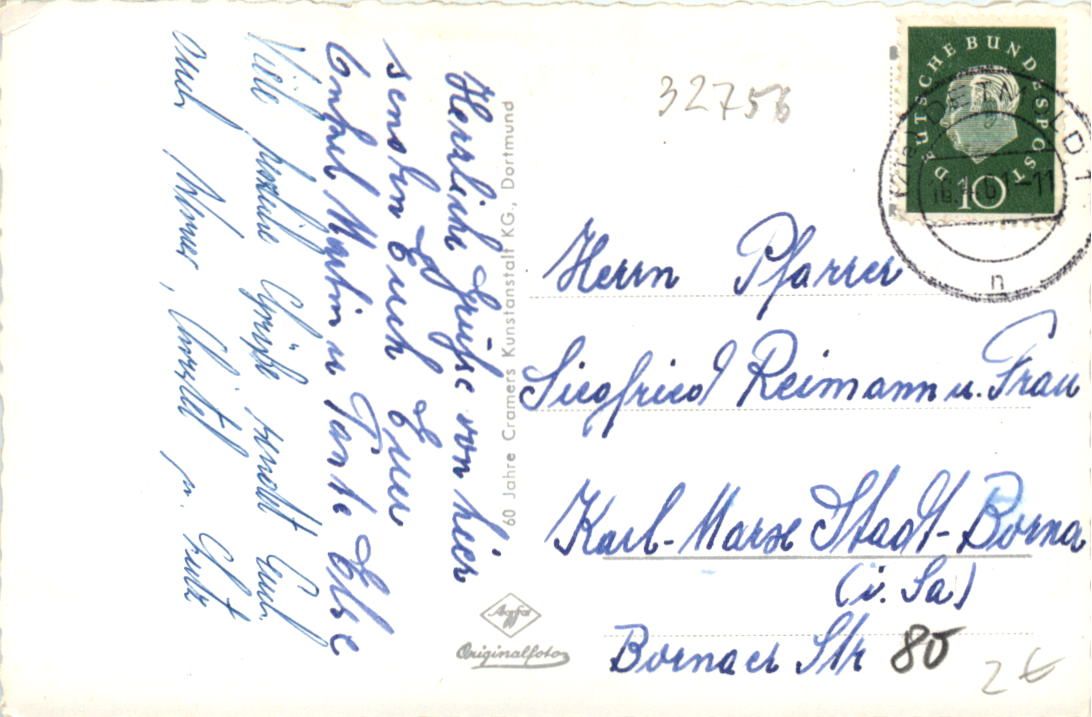 Herzliche Grüße von hier
senden Euch Euer
Onkel Martin u Tante Else
Viele Grüße sendet Euch
auch Werner, u.
60 Jahre Cramers Kunstanstalt KG., Dortmund
Agfa
Originalfoto
32756
DEUTSCHE BUNDESPOST
10
DETMOLD 1
-11
n
Herrn Pfarrer
Siegfried Reimann u. Frau
Karl-Marx Stadt-Borna
(i. Sa)
Bornaer Str 80
2€